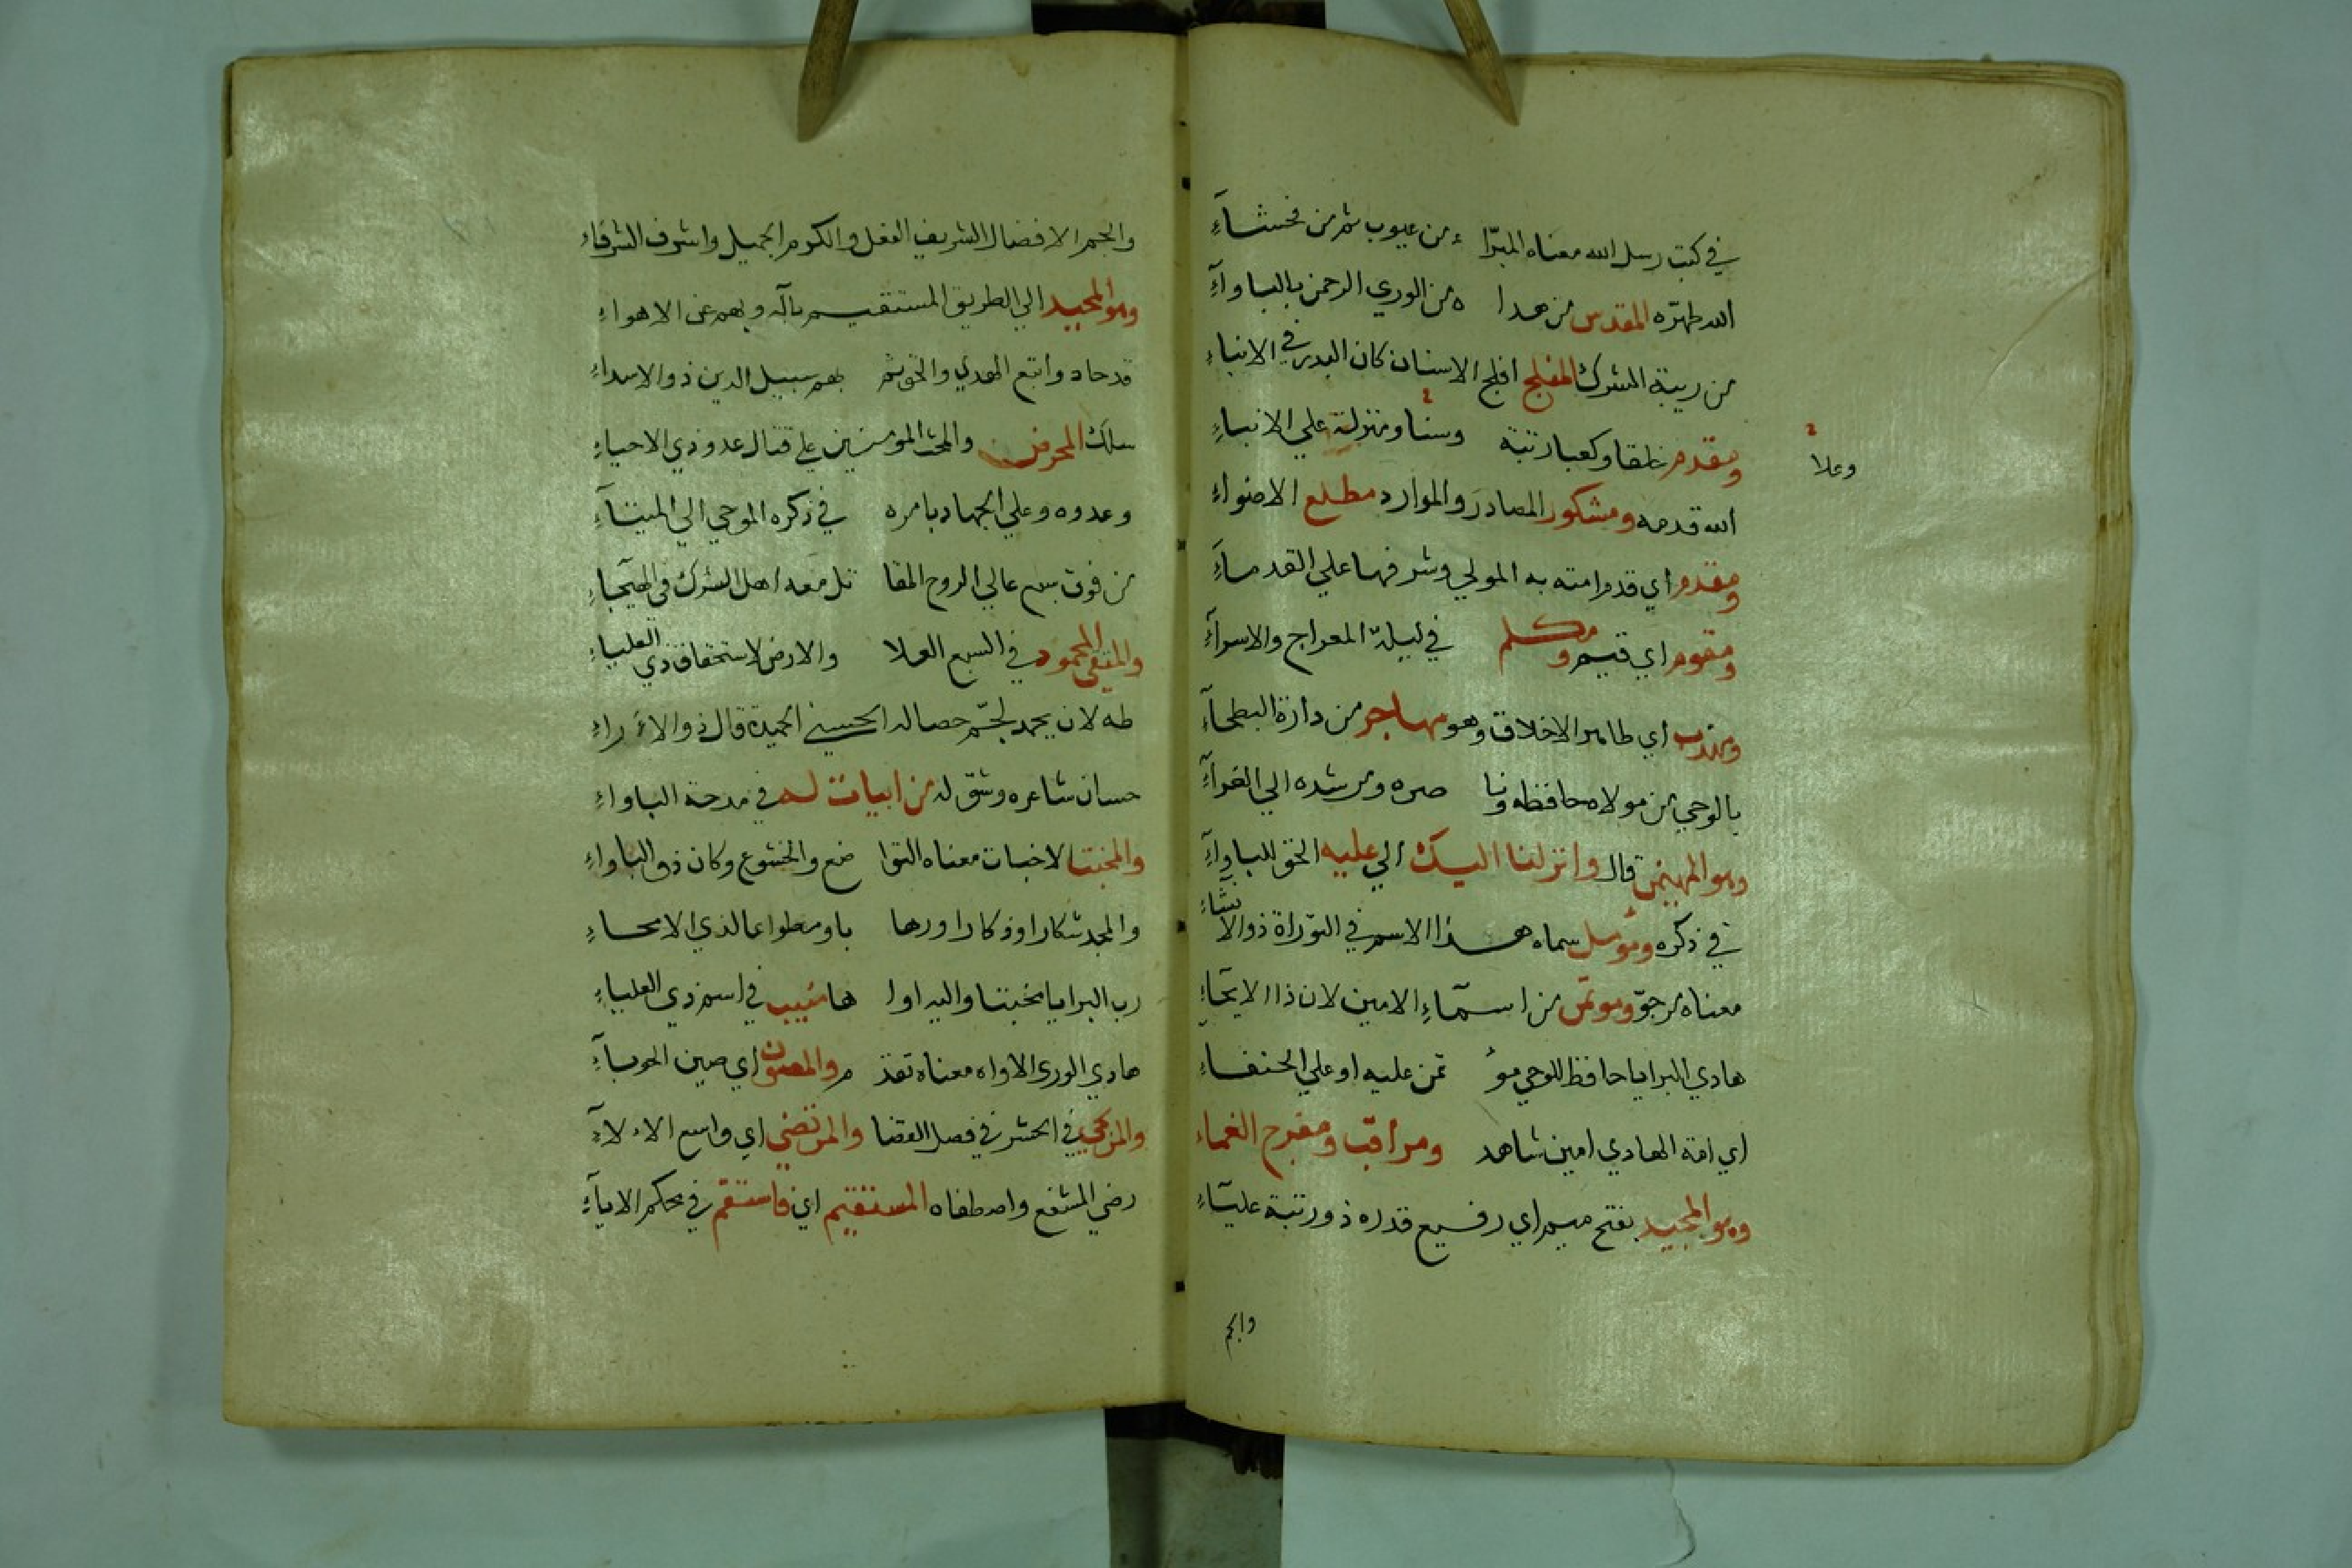 في كتب رسل الله معناه المبرّا ء من عيوب ثم من فحشآء
الله طهرّه المقدس من هدا ه من الوري الرحمن بالباوآء
من ريبة الشرك المفلج افلج الاسنان كان البدر في الانباء
ومقدم خلقا وكعبا رتبة وسنا ومنزلة علي الانبياء
وعلا
الله قدمه ومشكور المصادر والموارد مطلع الاضواء
ومقدم اي قدم امته به المولي وشرفها علي القدمآء
ومقوم اي قيم ومكلم في ليلة المعراج والاسرآء
ومهذب اي طاهر الاخلاق وهو مهاجر من دارة البطحآء
بالوحي من مولاه حافظه ونا صره ومرشده الي الغرآء
وهو المهيمن قال وانزلنا اليك الي عليه الحق للباوآء
في ذكره ومؤمل سماه هذا الاسم في التوراة ذو الانشاء
معناه مرجوّ ومؤتمن من اسمآء الامين لان ذا الايحآء
هادي البرايا حافظ للوحي مؤ تمن عليه او علي الحنفاء
اي امة الهادي امين شاهد ومراقب ومفرج الغماء
وهو المجيد بفتح ميم اي رفيع قدره ذو رتبة عليآء
والجم
والجم الافضال الشريف الفعل والكرم الجميل واشرف الشرفاء
وهو المحيد الي الطريق المستقيم بآله وبهم عن الاهواء
قد حاد واتبع الهدي والحق ثم بهم سبيل الدين ذو الاسداء
سلك المحرض والمحث المومنين علي قتال عدو ذي الاحياء
وعدوه وعلي الجهاد بامره في ذكره الموحي الي الميثآء
من فوق سبع عالي الروح المقا تل معه اهل الشرك في الهيجآء
والمتقي المحمود في السبع العلا والارض لاستحقاق ذي العلياء
طه لان يحمد لجمّ خصاله الحسني الحميدة قال ذو الآراء
حسان شاعره وشق له من ابيات له في مدحة الباواء
والمخبت الاخبات معناه التوا ضع والخشوع وكان ذو الباواء
والمجد شكارا وذكارا ورها با ومطواعا لذي الامحاء
رب البرايا مخبتا واليه اوا ها منيب في اسم ذي العلياء
هادي الوري الاواه معناه تقد م والمصون اي صين الحوبآء
والمرتجي في الحشر في فصل القضا والمرتضي اي واسع الآلاء
رضي المشفع واصطفاه المستقيم اي فاستقم في محكم الايآء